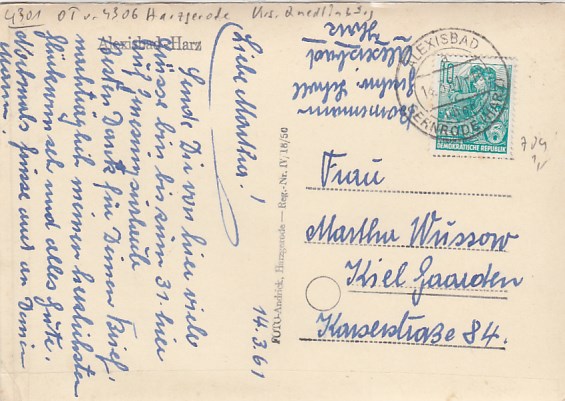 4301 OT v. 4306 Harzgerode Krs. Quedlinburg
Alexisbad-Harz
14.3.61
Liebe Martha!
Sende Dir von hier viele
Grüsse bin bis zum 31. hier
auf Genesungsurlaub
Vielen Dank für Deinen Brief,
nachträglich meinen herzlichsten
Glückwunsch und alles Gute.
Nochmals Grüsse auch an Deinen
Mann.
FOTO-Andrick, Harzgerode — Reg.-Nr. IV/18/50
Alexisbad
Harz
ALEXISBAD
GERNRODE (HARZ)
10
DEUTSCHE DEMOKRATISCHE REPUBLIK
704
Frau
Martha Wussow
Kiel Gaarden
Kaiserstraße 84.